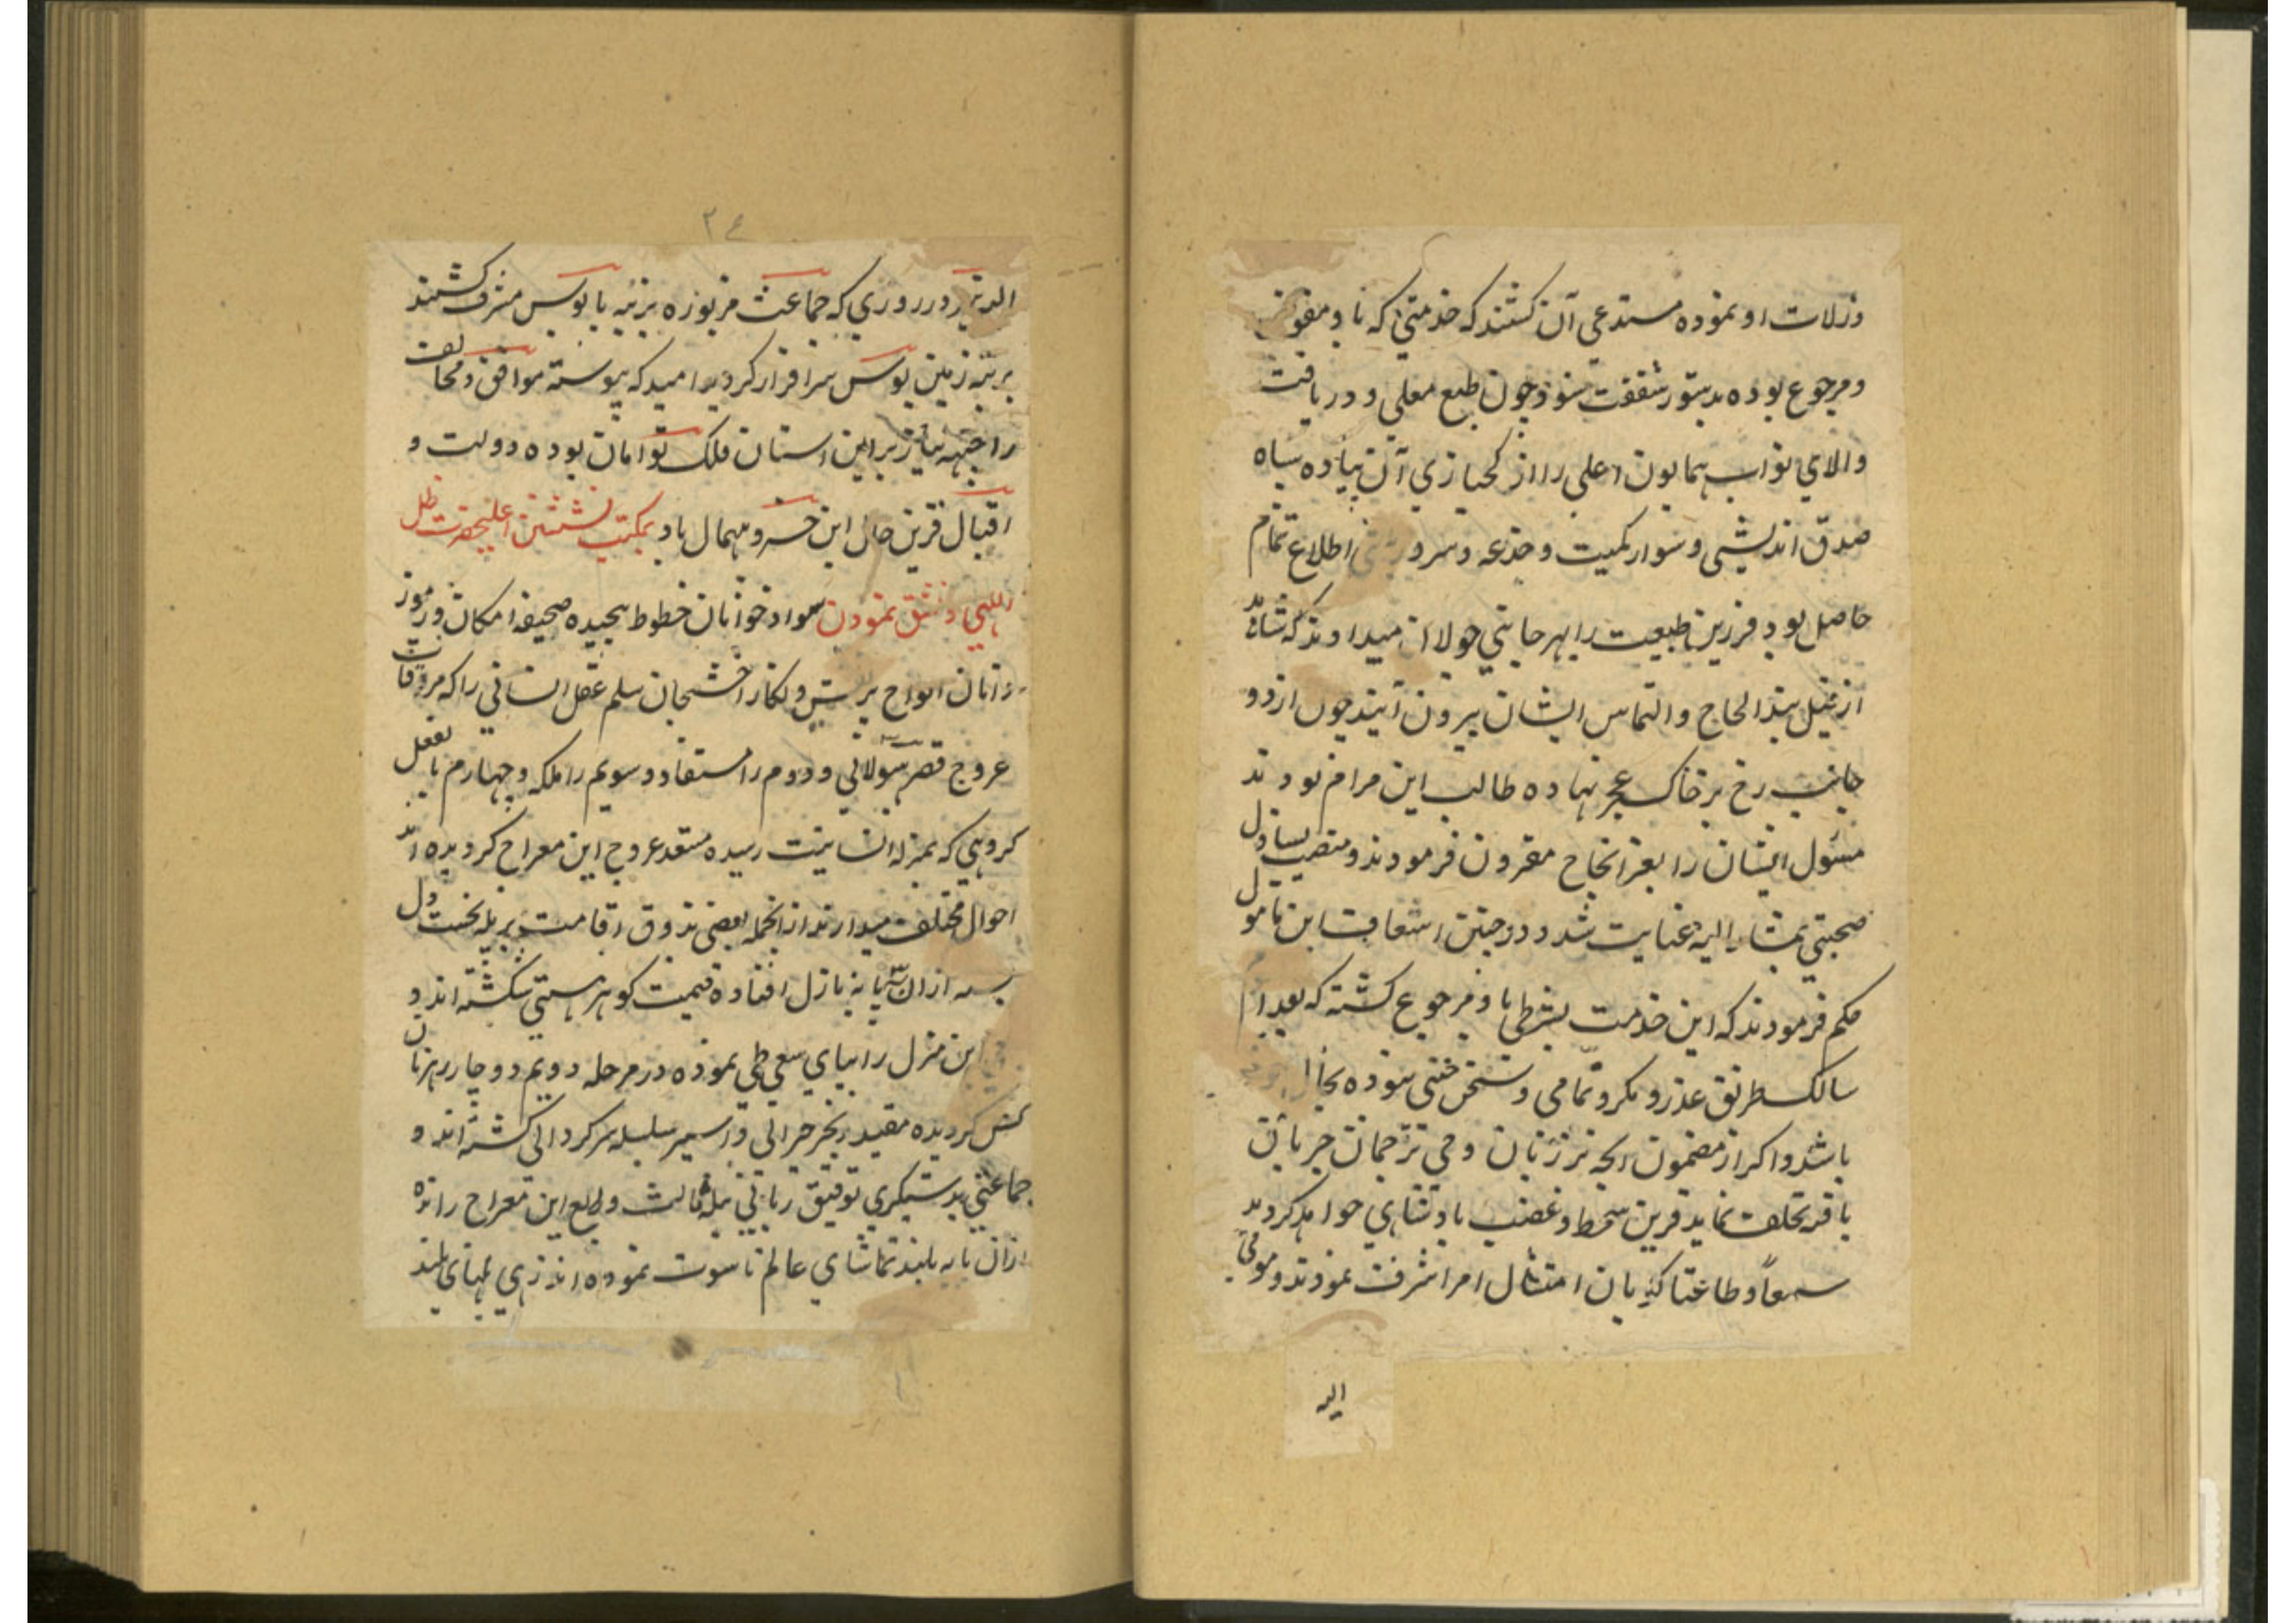 وزلات او نموده مستدعی آن کشتند که خدمتی که باو مفوض
و مرجوع بوده بدستور شفقت شود چون طبع معلی و دریافت
والای نواب همایون اعلی را از کجبازی آن پیاده سیاه
صدق اندیشی و سوار کمیت و خدعه و سرو اطلاع تمام
حاصل بود فرزین طبیعت را بهر جانبی جولان میدادند که شاید
از فیل بند الحاح و التماس ایشان بیرون آیند چون از دو
جانب رخ بر خاک عجز نهاده طالب این مرام بودند
مسؤل ایشان را بعز انجاح مقرون فرمودند و منصب یساول
صحبتی بمشار الیه عنایت شد و در حین اسعاف این مامول
حکم فرمودند که این خدمت بشرطی باو مرجوع کشته که بعد ایام
سالک طریق عذر و مکر و تمامی و سخن چینی نبوده بحال خود
باشد و اکر از مضمون انچه بر زبان وحی ترجمان جریان
یافته تخلف نماید قرین سخط و غضب پادشاهی خواهد کردید
سمعاً و طاعتا کویان امتثال امر اشرف نمودند و مومی
الیه
۳۴
الیه نیز در روزی که جماعت مزبوره برتبه پابوس مشرف کشتند
برتبه زمین بوس سرافراز کردید امید که پیوسته موافق و مخالف
را جبهه نیاز بر این استان فلک توامان بوده دولت و
اقبال قرین حال این خسرو بیهمال باد بمکتب نشستن اعلیحضرت ظل
اللهی و مشق نمودن سواد خوانان خطوط پیچیده صحیفه امکان و رموز
دانان الواح پر نقش و نکار اخشیجان سلم عقل انسانی را که مرقات
عروج قصر هیولانی و دوم را مستفاد و سویم را ملکه و چهارم بالفعل
کروهی که بمنزله انسانیت رسیده مستعد عروج این معراج کردیده اند
احوال مختلف میدارند از انجمله بعضی بذوق اقامت بر پله نخست دل
بسته از ان پایه نازل افتاده قیمت کوهر هستی شکسته اند و
این منزل را بپای سعی طی نموده در مرحله دویم دوچار رهزنان
کردیده مقید زنجیر حیرانی و اسیر سلسله سرکردانی کشته اند و
جماعتی بدستیکری توفیق ربانی بپله ثالث و رابع این معراج رانده
از ان پایه بلند تماشای عالم ناسوت نموده اند زهی همتهای بلند